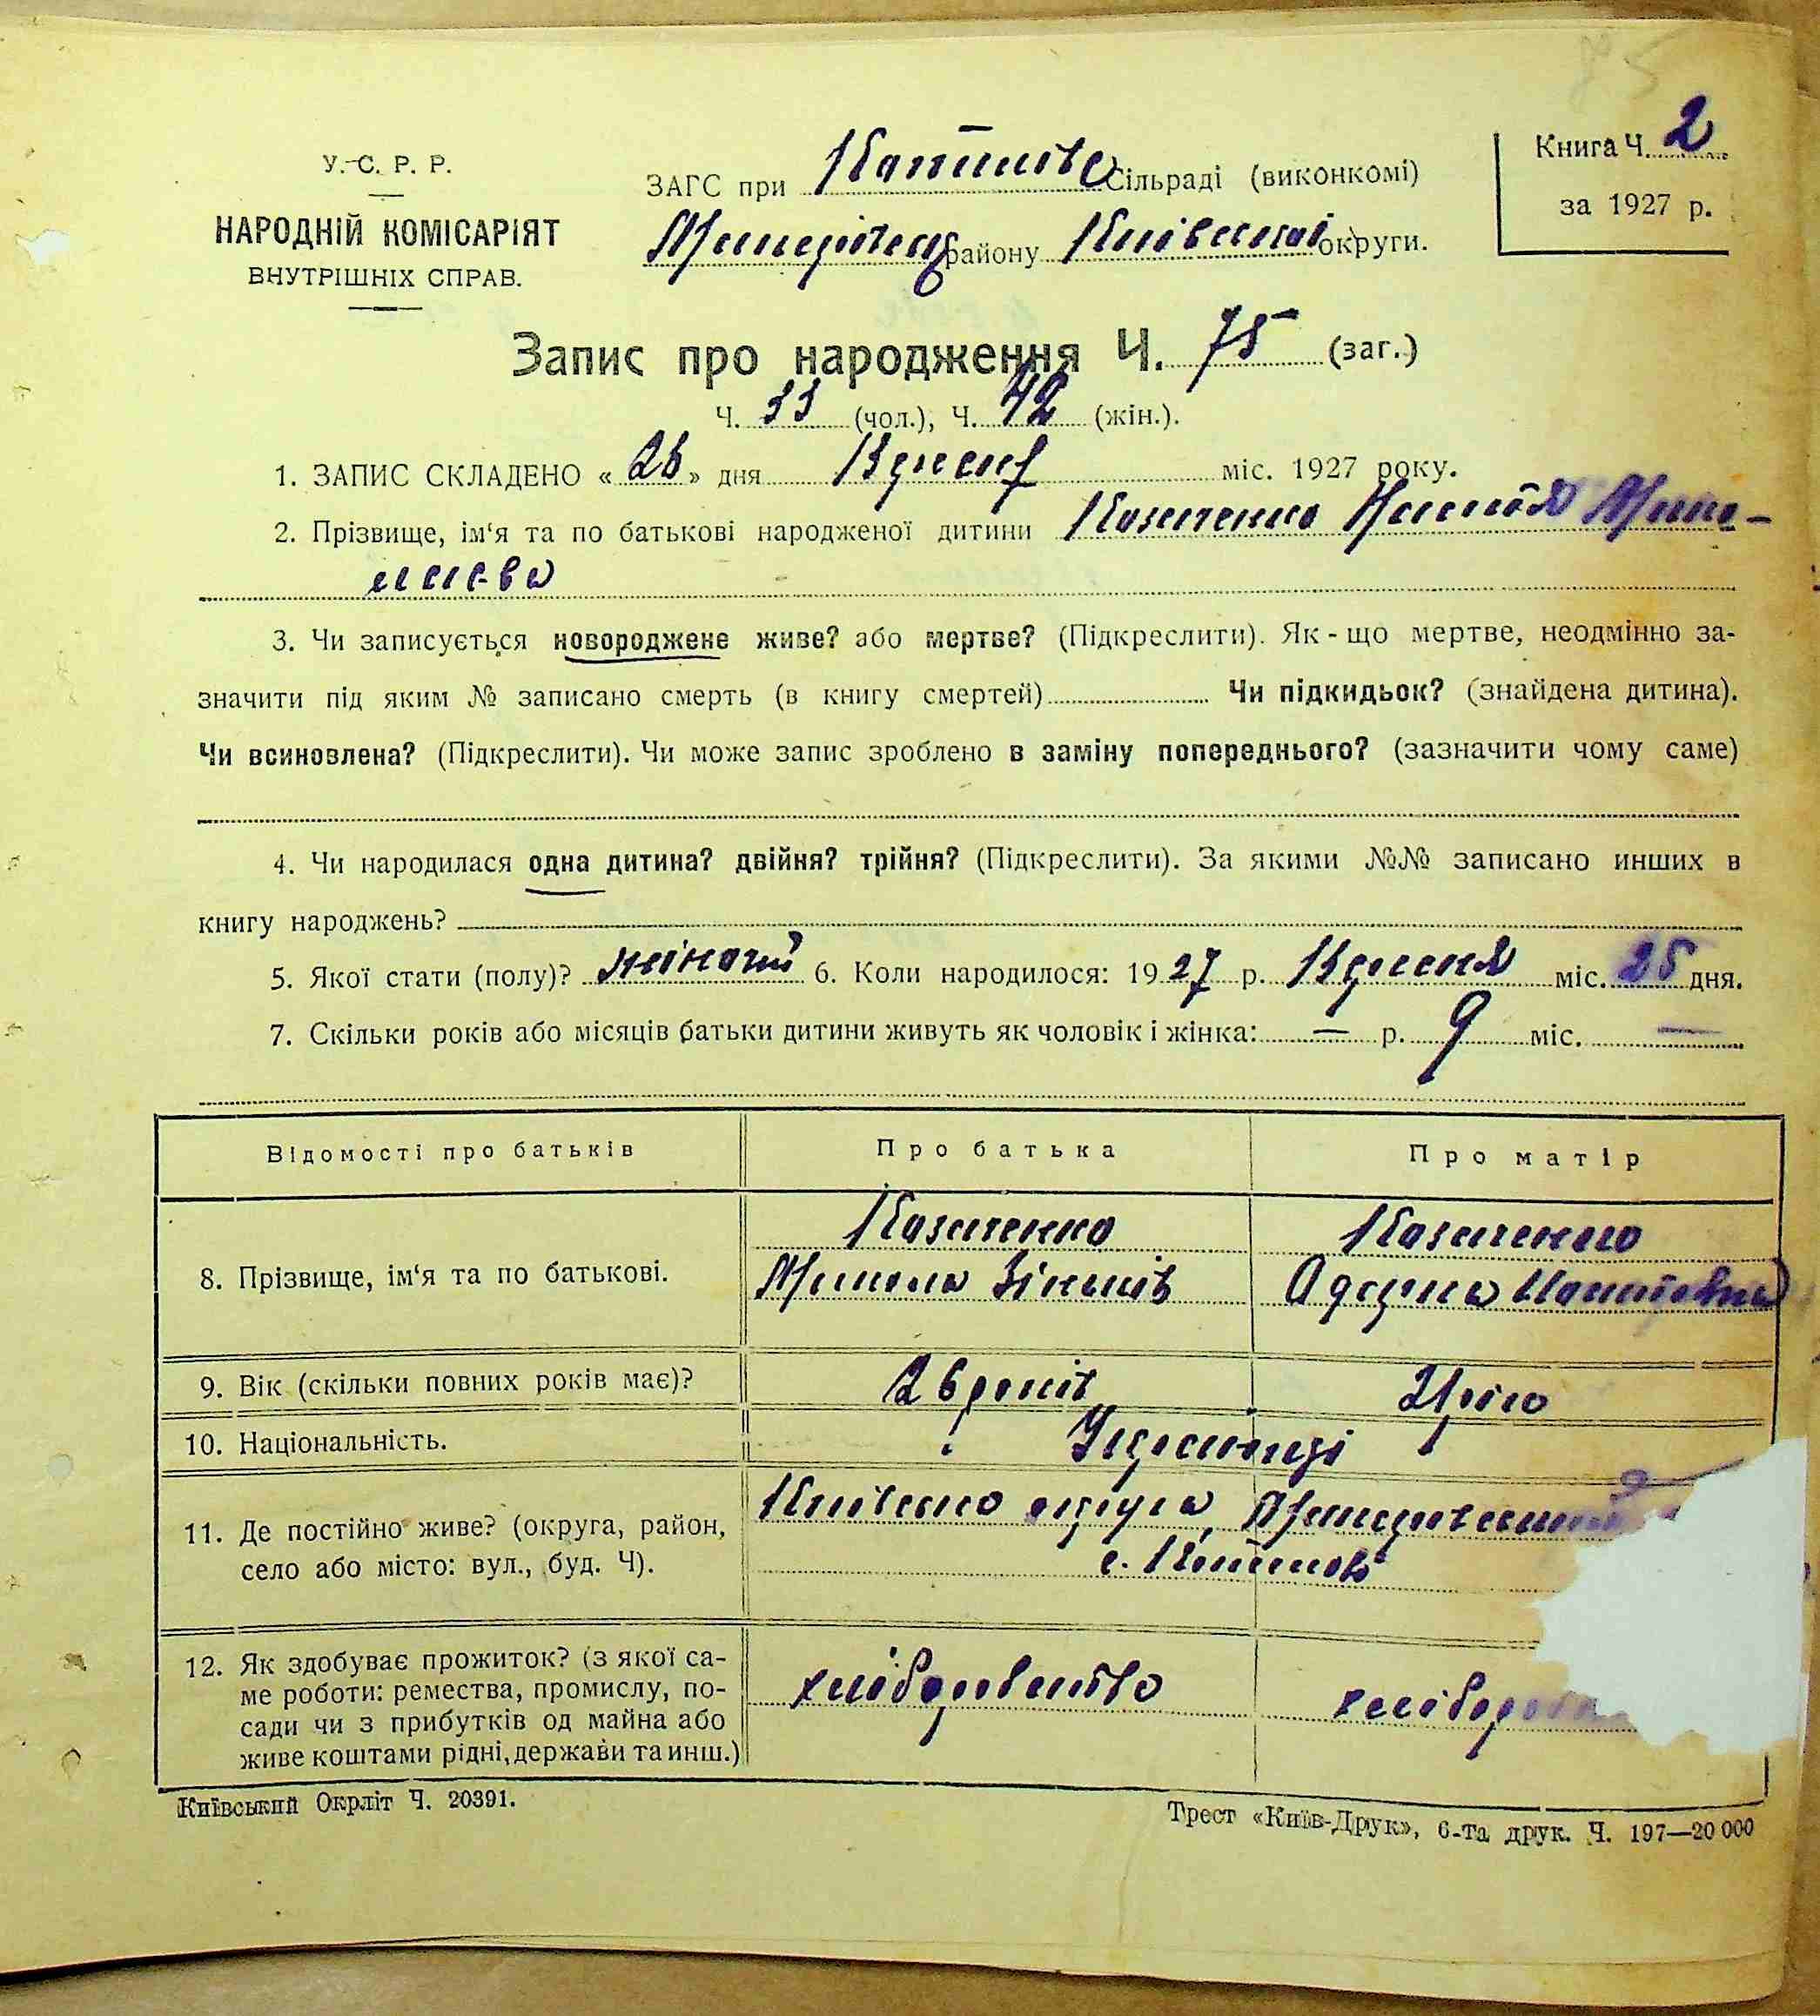 85
У.-С. Р. Р.
НАРОДНІЙ КОМІСАРІЯТ
ВНУТРІШНІХ СПРАВ.
ЗАГС при Сільраді (виконкомі)
району Київської округи.
Книга Ч. 2
за 1927 р.
Запис про народження Ч. 75 (заг.)
Ч. 33 (чол.), Ч. 42 (жін.).
1. ЗАПИС СКЛАДЕНО « 26 » дня Вересня міс. 1927 року.
2. Прізвище, ім‘я та по батькові народженої дитини Казаченко Мико-
лаєва
3. Чи записується новороджене живе? або мертве? (Підкреслити). Як - що мертве, неодмінно за-
значити під яким № записано смерть (в книгу смертей) Чи підкидьок? (знайдена дитина).
Чи всиновлена? (Підкреслити). Чи може запис зроблено в заміну попереднього? (зазначити чому саме)
4. Чи народилася одна дитина? двійня? трійня? (Підкреслити). За якими №№ записано инших в
книгу народжень?
5. Якої стати (полу)? жіночий 6. Коли народилося: 1927 р. Вересня міс. 25 дня.
7. Скільки років або місяців батьки дитини живуть як чоловік і жінка: — р. 9 міс. —
Відомості про батьків Про батька Про матір
8. Прізвище, ім‘я та по батькові.
Казаченко Казаченко
Микола Зіньків
9. Вік (скільки повних років має)? 26 років 21 рік
10. Національність. Українці
11. Де постійно живе? (округа, район,
село або місто: вул., буд. Ч).
Київська округа,
с.
12. Як здобуває прожиток? (з якої са-
ме роботи: ремества, промислу, по-
сади чи з прибутків од майна або
живе коштами рідні, держави та инш.)
хліборобство
Київський Окрліт Ч. 20391.
Трест «Київ-Друк», 6-та друк. Ч. 197—20 000